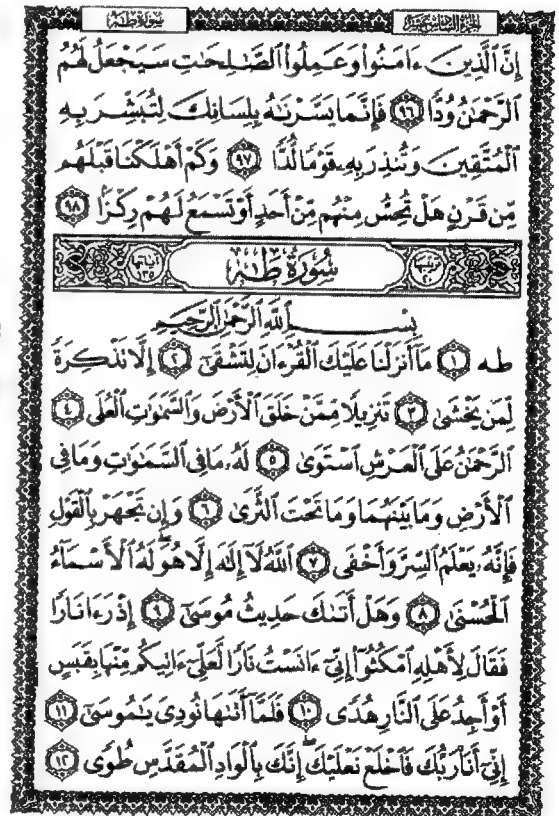 سُورَةُ طه
الجزء السادس عشر
إِنَّ ٱلَّذِينَ ءَامَنُوا۟ وَعَمِلُوا۟ ٱلصَّٰلِحَٰتِ سَيَجْعَلُ لَهُمُ
ٱلرَّحْمَٰنُ وُدًّا ٩٦ فَإِنَّمَا يَسَّرْنَٰهُ بِلِسَانِكَ لِتُبَشِّرَ بِهِ
ٱلْمُتَّقِينَ وَتُنذِرَ بِهِۦ قَوْمًا لُّدًّا ٩٧ وَكَمْ أَهْلَكْنَا قَبْلَهُم
مِّن قَرْنٍ هَلْ تُحِسُّ مِنْهُم مِّنْ أَحَدٍ أَوْ تَسْمَعُ لَهُمْ رِكْزًۢا ٩٨
ترتيبها ٢٠ سُورَةُ طه آياتها ١٣٥
بِسْمِ ٱللَّهِ ٱلرَّحْمَٰنِ ٱلرَّحِيمِ
طه ١ مَآ أَنزَلْنَا عَلَيْكَ ٱلْقُرْءَانَ لِتَشْقَىٰٓ ٢ إِلَّا تَذْكِرَةً
لِّمَن يَخْشَىٰ ٣ تَنزِيلًا مِّمَّنْ خَلَقَ ٱلْأَرْضَ وَٱلسَّمَٰوَٰتِ ٱلْعُلَى ٤
ٱلرَّحْمَٰنُ عَلَى ٱلْعَرْشِ ٱسْتَوَىٰ ٥ لَهُۥ مَا فِى ٱلسَّمَٰوَٰتِ وَمَا فِى
ٱلْأَرْضِ وَمَا بَيْنَهُمَا وَمَا تَحْتَ ٱلثَّرَىٰ ٦ وَإِن تَجْهَرْ بِٱلْقَوْلِ
فَإِنَّهُۥ يَعْلَمُ ٱلسِّرَّ وَأَخْفَى ٧ ٱللَّهُ لَآ إِلَٰهَ إِلَّا هُوَۖ لَهُ ٱلْأَسْمَآءُ
ٱلْحُسْنَىٰ ٨ وَهَلْ أَتَىٰكَ حَدِيثُ مُوسَىٰٓ ٩ إِذْ رَءَا نَارًا
فَقَالَ لِأَهْلِهِ ٱمْكُثُوٓا۟ إِنِّىٓ ءَانَسْتُ نَارًا لَّعَلِّىٓ ءَاتِيكُم مِّنْهَا بِقَبَسٍ
أَوْ أَجِدُ عَلَى ٱلنَّارِ هُدًى ١٠ فَلَمَّآ أَتَىٰهَا نُودِىَ يَٰمُوسَىٰٓ ١١
إِنِّىٓ أَنَا۠ رَبُّكَ فَٱخْلَعْ نَعْلَيْكَۖ إِنَّكَ بِٱلْوَادِ ٱلْمُقَدَّسِ طُوًى ١٢